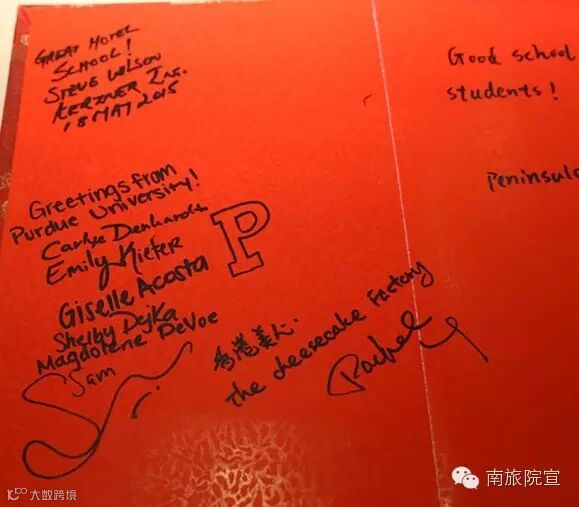 GREAT HOTEL
SCHOOL!
STEVE WILSON
KERZNER Int.
18 MAY 2015
Good school
students!
Peninsula
Greetings from
Purdue University!
Carlye Denhardt
Emily Kiefer
P
Giselle Acosta
Shelby Dejka
Magdolene DeVoe
Sam
香港美心.
The cheesecake Factory
南旅院宣
大数跨境